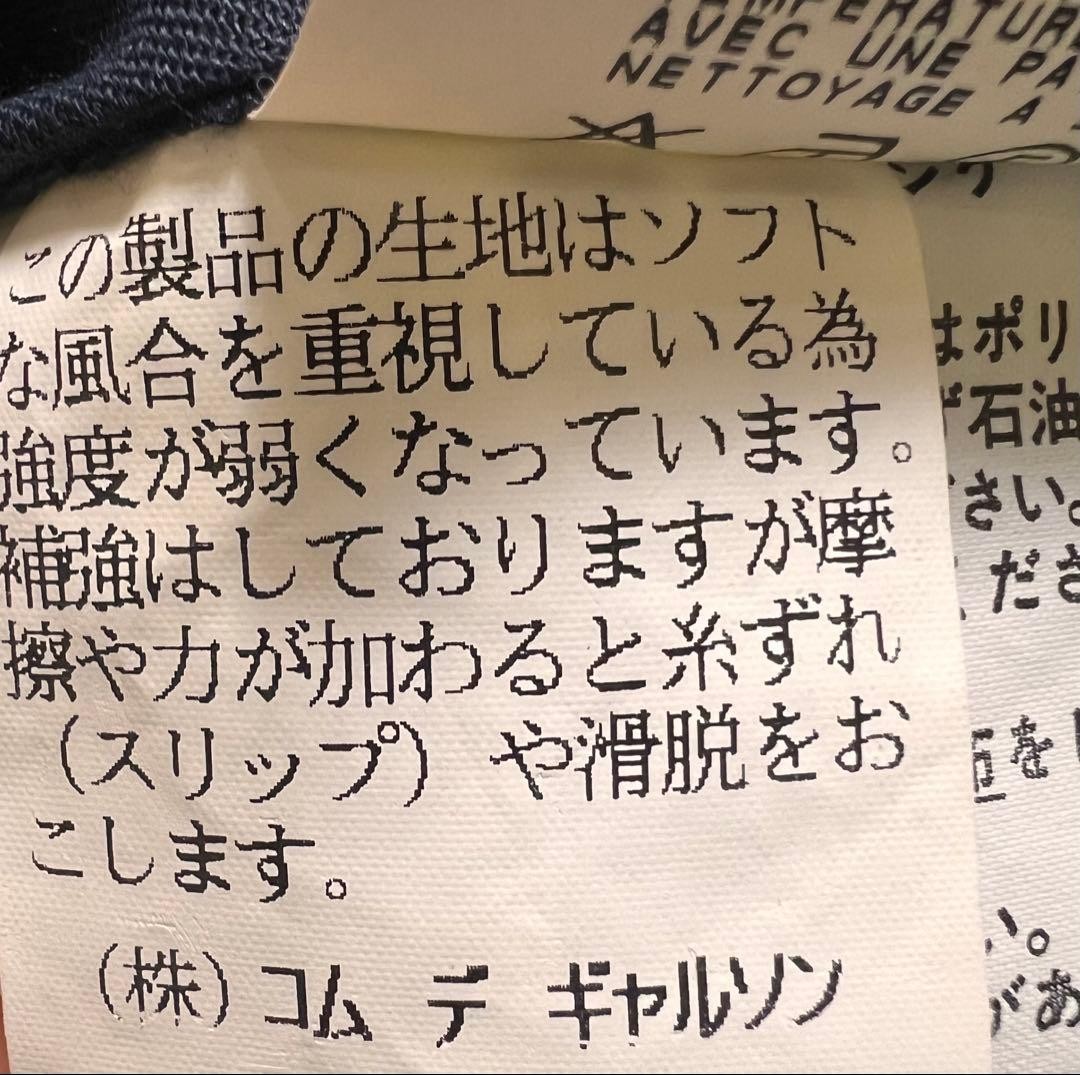 AVEC UNE PA
NETTOYAGE A
この製品の生地はソフト
な風合を重視している為
強度が弱くなっています。
補強はしておりますが摩
擦や力が加わると糸ずれ
(スリップ) や滑脱をお
こします。
(株) コム デ ギャルソン
はポリ
石油
さい。
ださ
を
い。
があ